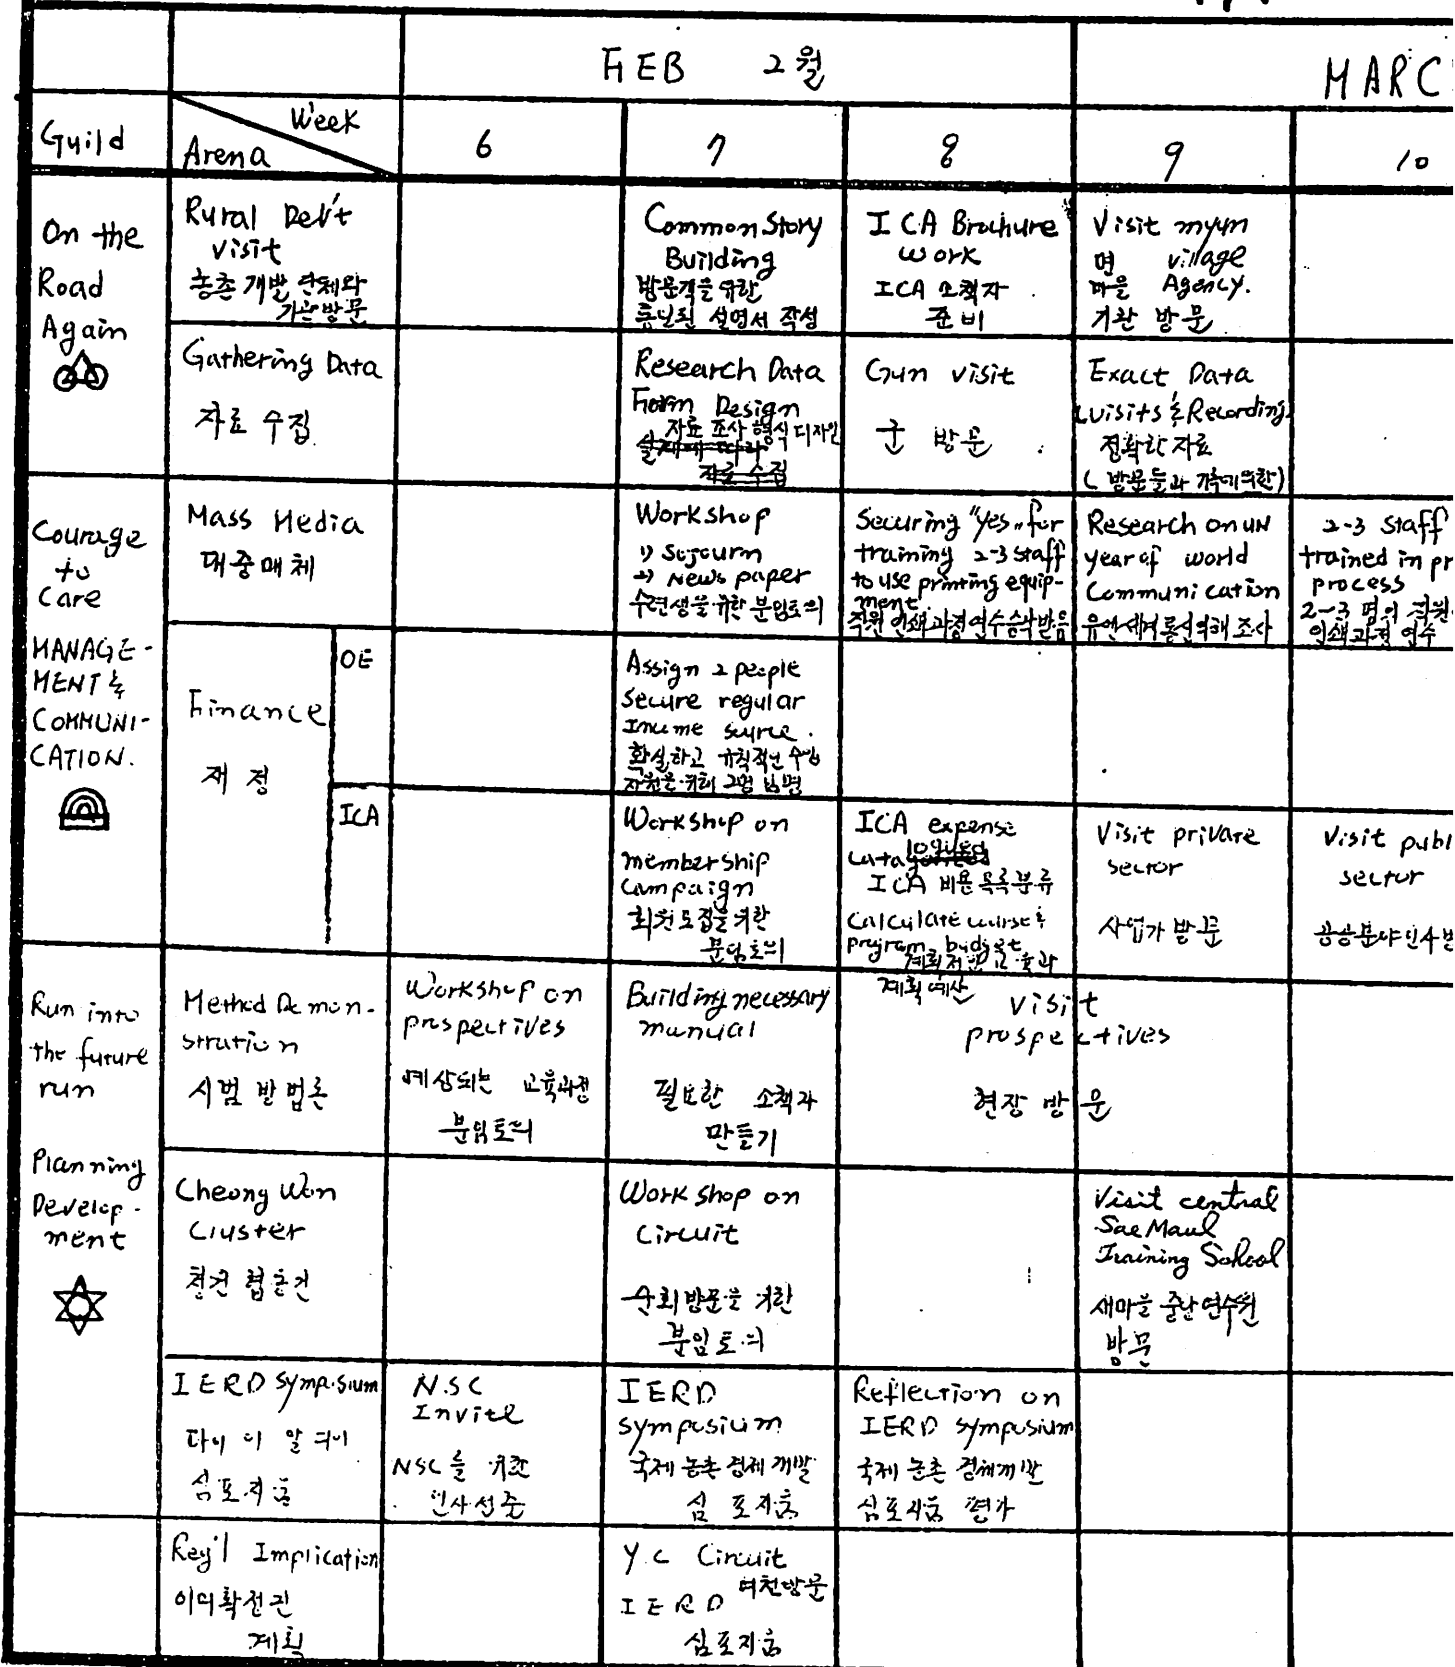 FEB 2월
MARC
Guild
Week
Arena
6
7
8
9
10
On the
Road
Again
Rural Dev't
visit
농촌 개발 단체와
기관방문
Common Story
Building
방문객을 위한
통일된 설명서 작성
ICA Brochure
work
ICA 소책자
준비
Visit myun
면 village
마을 Agency.
기관 방문
Gathering Data
자료 수집
Research Data
Form Design
자료 조사 형식 디자인
자료 수집
Gun visit
군 방문
Exact Data
visits & Recording
정확한 자료
(방문들과 기록에 의한)
Courage
to
Care
MANAGE-
MENT &
COMMUNI-
CATION.
Mass Media
대중매체
Workshop
1) Sojourn
2) News paper
수련생을 위한 분임토의
Securing "yes" for
training 2-3 staff
to use printing equip-
ment.
직원 인쇄과정 연수승낙받음
Research on UN
year of world
Communication
유엔세계통신의해 조사
2-3 staff
trained in pr
process
2-3 명의 직원
인쇄과정 연수
Finance
재정
OE
Assign 2 people
Secure regular
Income source.
확실하고 규칙적인 수입
자원을 위해 2명
ICA
Workshop on
membership
campaign
회원모집을 위한
분임토의
ICA expense
ICA 비용목록분류
Calculate course &
program budget
계획예산
Visit private
sector
사업가 방문
Visit publ
sector
공공분야인사방
Run into
the future
run
Planning
Develop-
ment
Method Demon-
stration
시범 방법론
Workshop on
prospectives
예상되는 교육과정
분임토의
Building necessary
manual
필요한 소책자
만들기
Visit
prospectives
현장 방문
Cheong Won
Cluster
청원
Workshop on
Circuit
순회방문을 위한
분임토의
Visit central
SaeMaul
Training School
새마을 중앙연수원
방문
IERD Symposium
심포지움
N.S.C
Invite
NSC를 위한
인사선출
IERD
symposium
국제 농촌 경제개발
심포지움
Reflection on
IERD symposium
국제 농촌 경제개발
심포지움 평가
Reg'l Implication
계획
Y.C Circuit
여천방문
IERD
심포지움